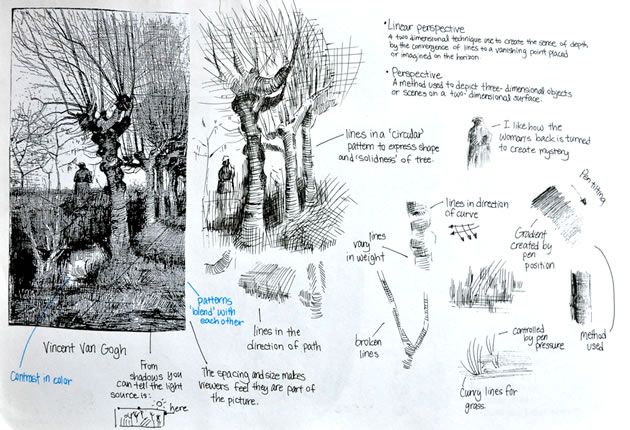 • Linear perspective
A two dimensional technique use to create the sense of depth
by the convergence of lines to a vanishing point placed
or imagined on the horizon.
• Perspective
A method used to depict three-dimensional objects
or scenes on a two-dimensional surface.
lines in a 'circular'
pattern to express shape
and 'solidness' of tree.
I like how the
woman's back is turned
to create mystery
Pen tilting
lines in direction
of curve
Gradient
created by
pen
position
lines
vary
in weight
patterns
'blend' with
each other
lines in the
direction of path
broken
lines
controlled
by pen
pressure
method
used
Curvy lines for
grass.
Vincent Van Gogh
Contrast in color
From
shadows you
can tell the light
source is:
here
The spacing and size makes
viewers feel they are part of
the picture.